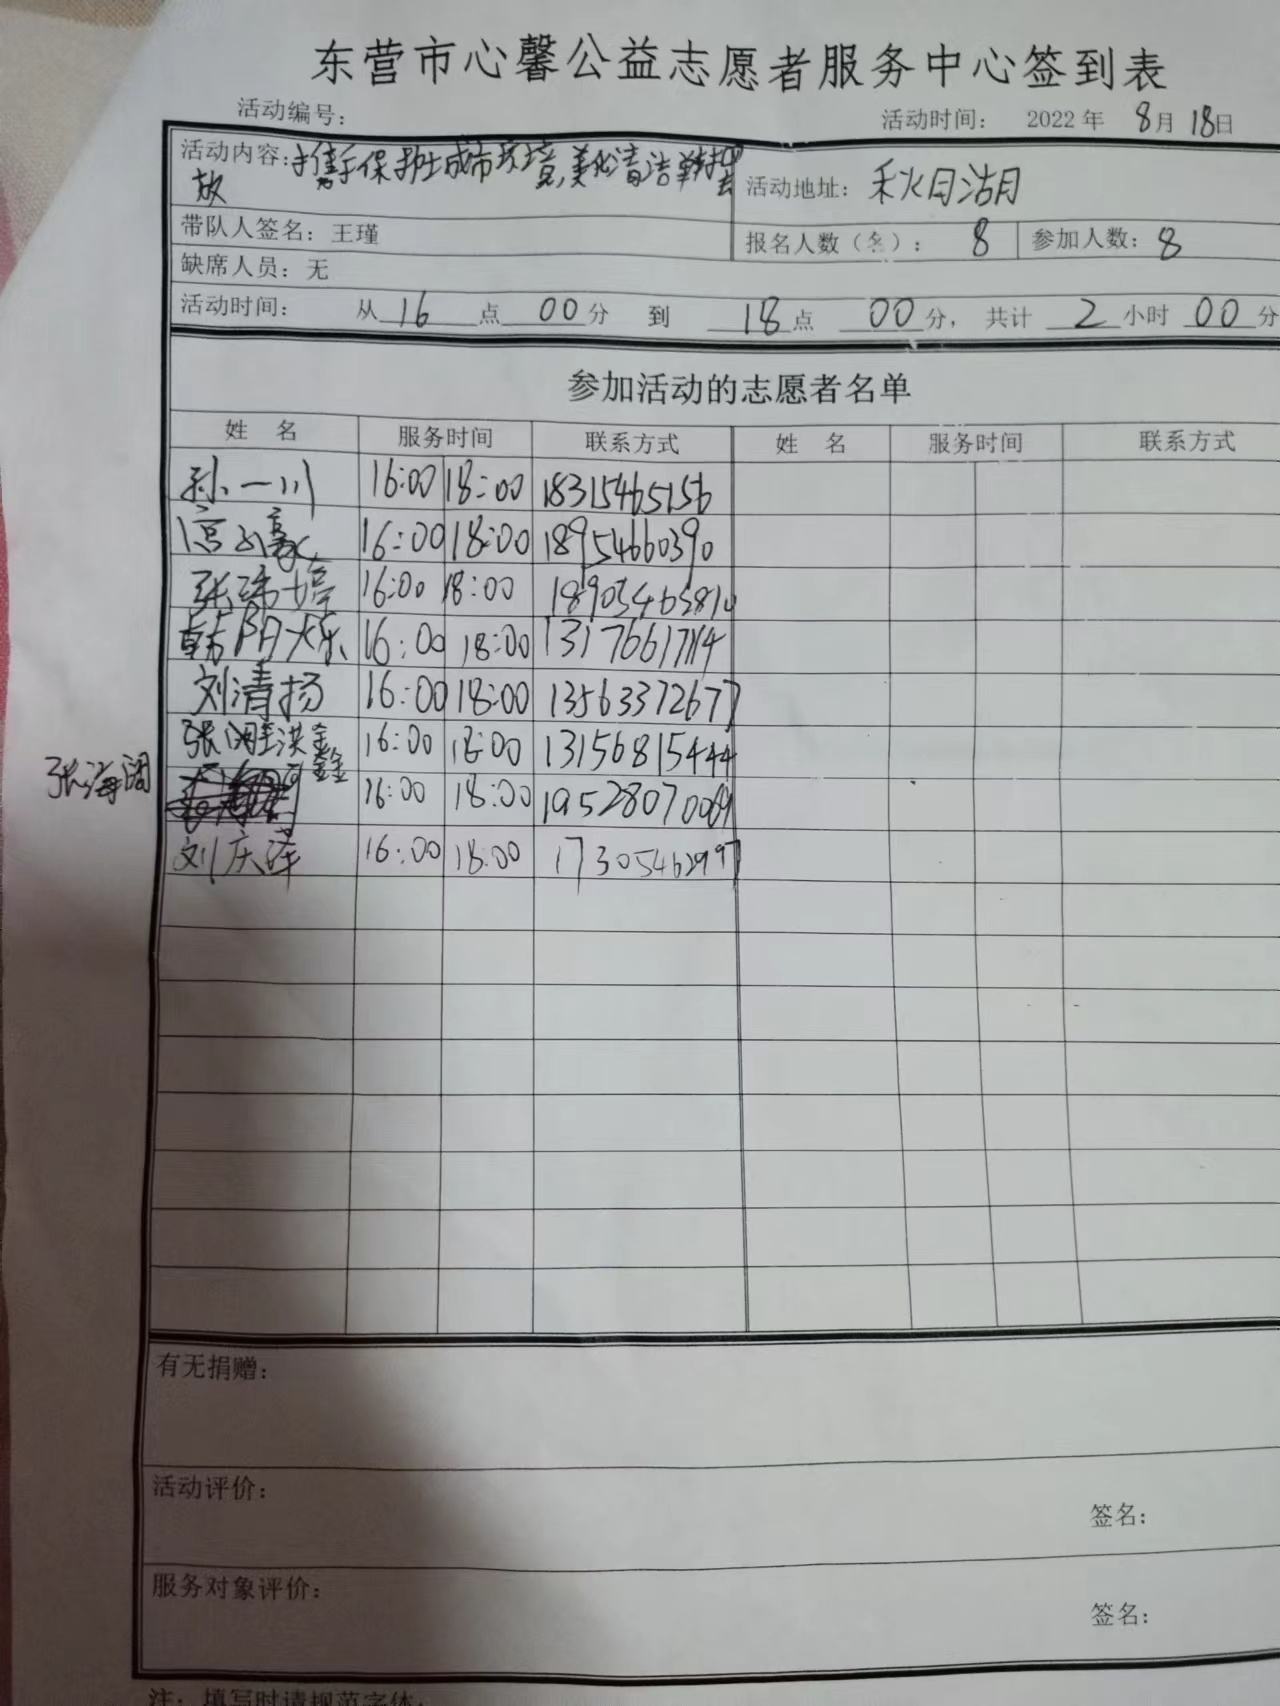 东营市心馨公益志愿者服务中心签到表
活动编号： 活动时间： 2022年 8月 18日
活动内容：携手保护城市环境,美化清洁单车摆
放
活动地址：秋月湖
带队人签名：王瑾
报名人数（名）： 8 参加人数：8
缺席人员：无
活动时间： 从 16 点 00 分 到 18 点 00 分，共计 2 小时 00 分
参加活动的志愿者名单
姓 名 服务时间 联系方式 姓 名 服务时间 联系方式
孙一川 16:00 18:00 18315465156
16:00 18:00 18954660390
张 婷 16:00 18:00
韩阳 16:00 18:00 13176617114
刘清扬 16:00 18:00 13563372677
张 洪鑫 16:00 18:00 13156815444
张海阔 16:00 18:00
刘庆泽 16:00 18:00 17305462997
有无捐赠：
活动评价：
签名：
服务对象评价：
签名：
注：填写时请规范字体；